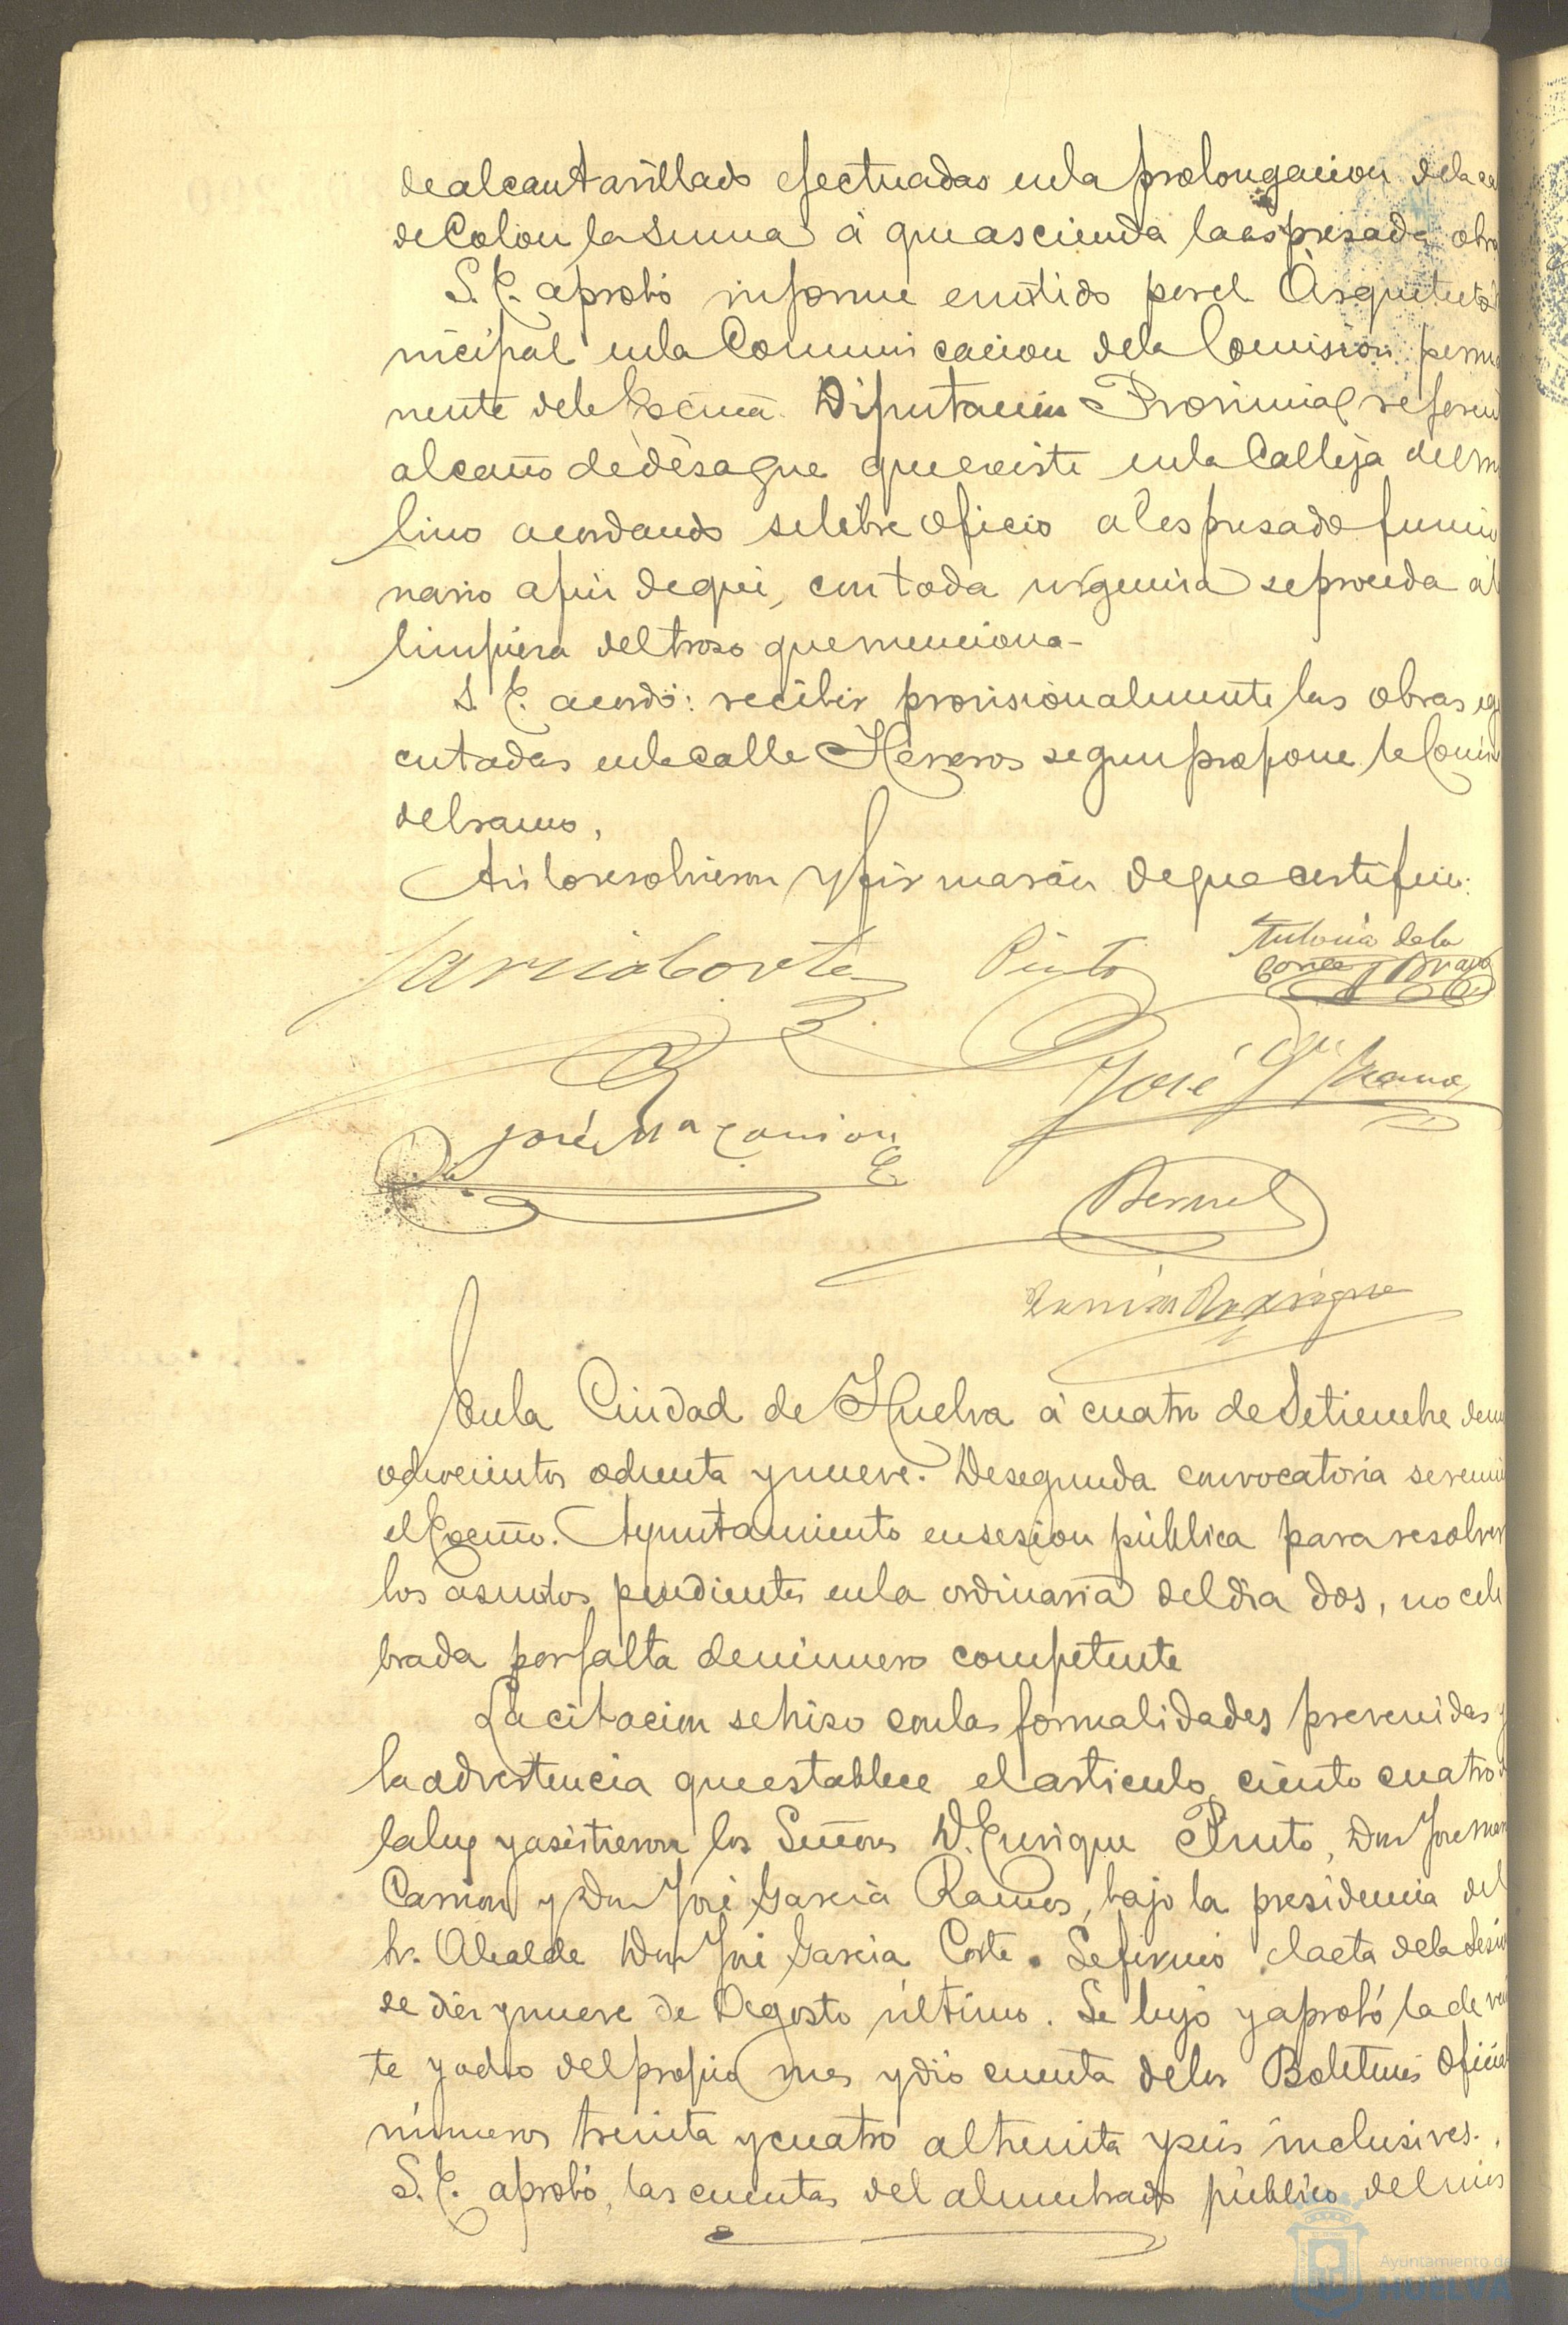 de alcantarillado efectuadas en la prolongacion de la ca
de Colon la suma á que ascienda la espresada obra
S. E. aprobó informe emitido por el Arquitecto
nicipal en la Comunicacion de la Comision perma
nente de la Excma. Diputacion Provincial referen
al caño de desague que existe en la Calleja del m
lino acordando se libre oficio al espresado funcio
nario a fin de que, con toda urgencia se proceda al
limpieza del troso que menciona-
S. E. acordó: recibir provisionalmente las obras eje
cutadas en la calle Herreros segun propone la Comis
del ramo,
Asi lo resolvieron y firmarán de que certifico:
Garcia Corte Pinto Antonio de la
Corte y Bravo
José Gª Ramos
José Mª Carrion
Bernal
Ramón Rodrigue
En la Ciudad de Huelva á cuatro de Setiembre de mi
ochocientos ochenta y nueve. De segunda convocatoria se reunio
el Excmo. Ayuntamiento en sesion pública para resolver
los asuntos pendientes en la ordinaria del dia dos, no cele
brada por falta de número competente
La citacion se hiso con las formalidades prevenidas y
la advertencia que establece el articulo ciento cuatro d
la ley y asistieron los Señores D. Enrique Pinto, Don Jose Mar
Carrion y Don José Garcia Ramos, bajo la presidencia del
Sr. Alcalde Don José Garcia Corte. Se firmó el acta de la sesio
de diez y nueve de Agosto último. Se leyó y aprobó la de vei
te y ocho del propio mes y dió cuenta de los Boletines Oficial
números treinta y cuatro al treinta y seis inclusives.
S. E. aprobó, las cuentas del alumbrado público del mes
Ayuntamiento de
HUELVA